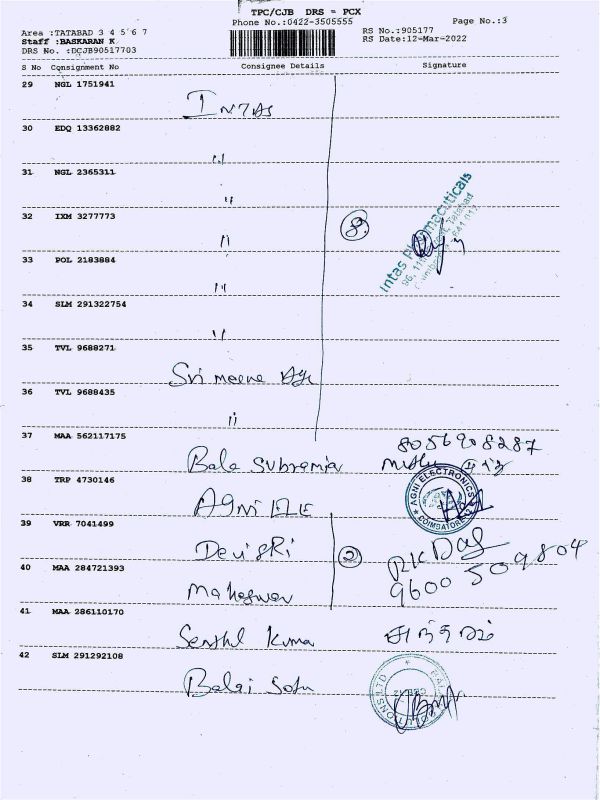 TPC/CJB DRS = PCX
Phone No.:0422-3505555
Page No.:3
Area :TATABAD 3 4 5 6 7
Staff :BASKARAN K
DRS No. :DCJB90517703
RS No.:905177
RS Date:12-Mar-2022
S No Consignment No Consignee Details Signature
29 NGL 1751941
INTAS
30 EDQ 13362882
"
31 NGL 2365311
"
32 IXM 3277773
"
Intas Pharmaceuticals
8
33 POL 2183884
"
34 SLM 291322754
"
35 TVL 9688271
Sri meena Agc
36 TVL 9688435
"
37 MAA 562117175
8056908287
Bala Subramia
38 TRP 4730146
AGNI ELECTRONICS
COIMBATORE
AGNI ELE
39 VRR 7041499
Devi SRi
2
RK Das
9600 509804
40 MAA 284721393
Maheswar
41 MAA 286110170
Senthil Kuma
42 SLM 291292108
Balai Sotu